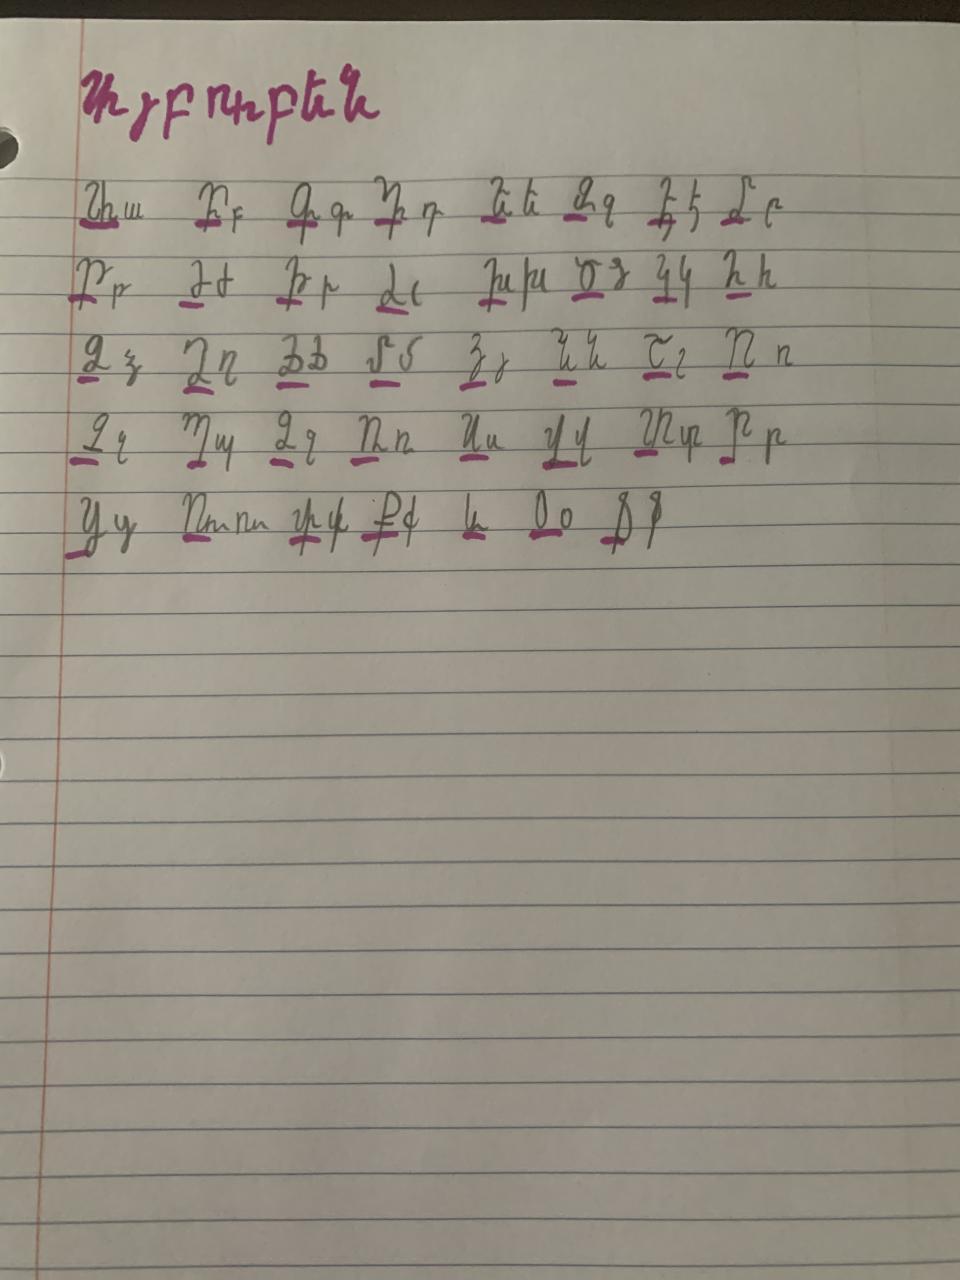 Այբուբեն
Աա Բբ Գգ Դդ Եե Զզ Էէ Ըը
Թթ Ժժ Իի Լլ Խխ Ծծ Կկ Հհ
Ձձ Ղղ Ճճ Մմ Յյ Նն Շշ Ոո
Չչ Պպ Ջջ Ռռ Սս Վվ Տտ Րր
Ցց Ուու Փփ Քք և Օօ Ֆֆ